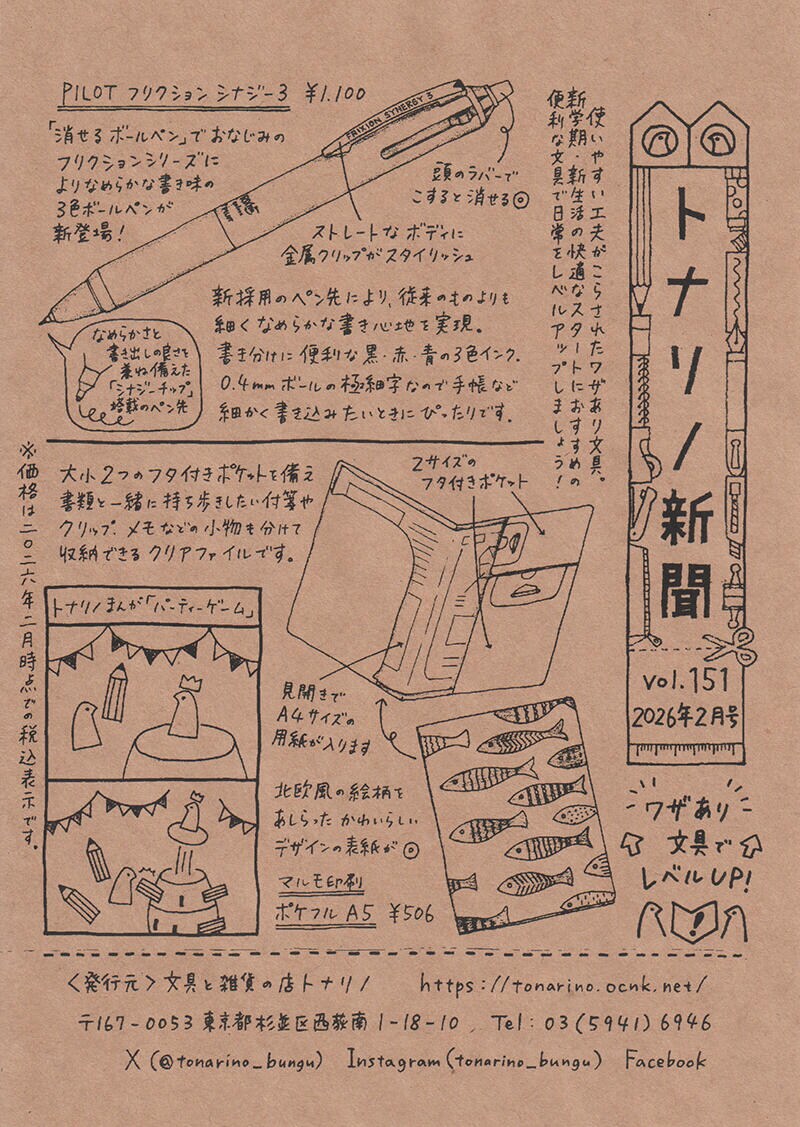 トナリノ新聞
vol.151
2026年2月号
ワザあり
文具で
レベルUP!
使いやすい工夫がこらされたワザあり文具。
新学期・新生活の快適なスタートにおすすめの
便利な文具で日常をレベルアップしましょう!
PILOT フリクション シナジー3 ¥1.100
「消せるボールペン」でおなじみの
フリクションシリーズに
よりなめらかな書き味の
3色ボールペンが
新登場!
FRIXION SYNERGY 3
頭のラバーで
こすると消せる◎
ストレートなボディに
金属クリップがスタイリッシュ
新採用のペン先により、従来のものよりも
細くなめらかな書き心地を実現。
書き分けに便利な黒・赤・青の3色インク。
0.4mmボールの極細字なので手帳など
細かく書き込みたいときにぴったりです。
なめらかさと
書き出しの良さを
兼ね備えた
「シナジーチップ」
搭載のペン先
大小2つのフタ付きポケットを備え
書類と一緒に持ち歩きしたい付箋や
クリップ、メモなどの小物も分けて
収納できるクリアファイルです。
2サイズの
フタ付きポケット
見開きで
A4サイズの
用紙が入ります
北欧風の絵柄を
あしらったかわいらしい
デザインの表紙が◎
マルモ印刷
ポケフルA5 ¥506
トナリノまんが「パーティーゲーム」
※価格は二〇二六年二月時点での税込表示です。
<発行元>文具と雑貨の店トナリノ https://tonarino.ocnk.net/
〒167-0053 東京都杉並区西荻南1-18-10, Tel:03(5941)6946
X (@tonarino_bungu) Instagram(tonarino_bungu) Facebook